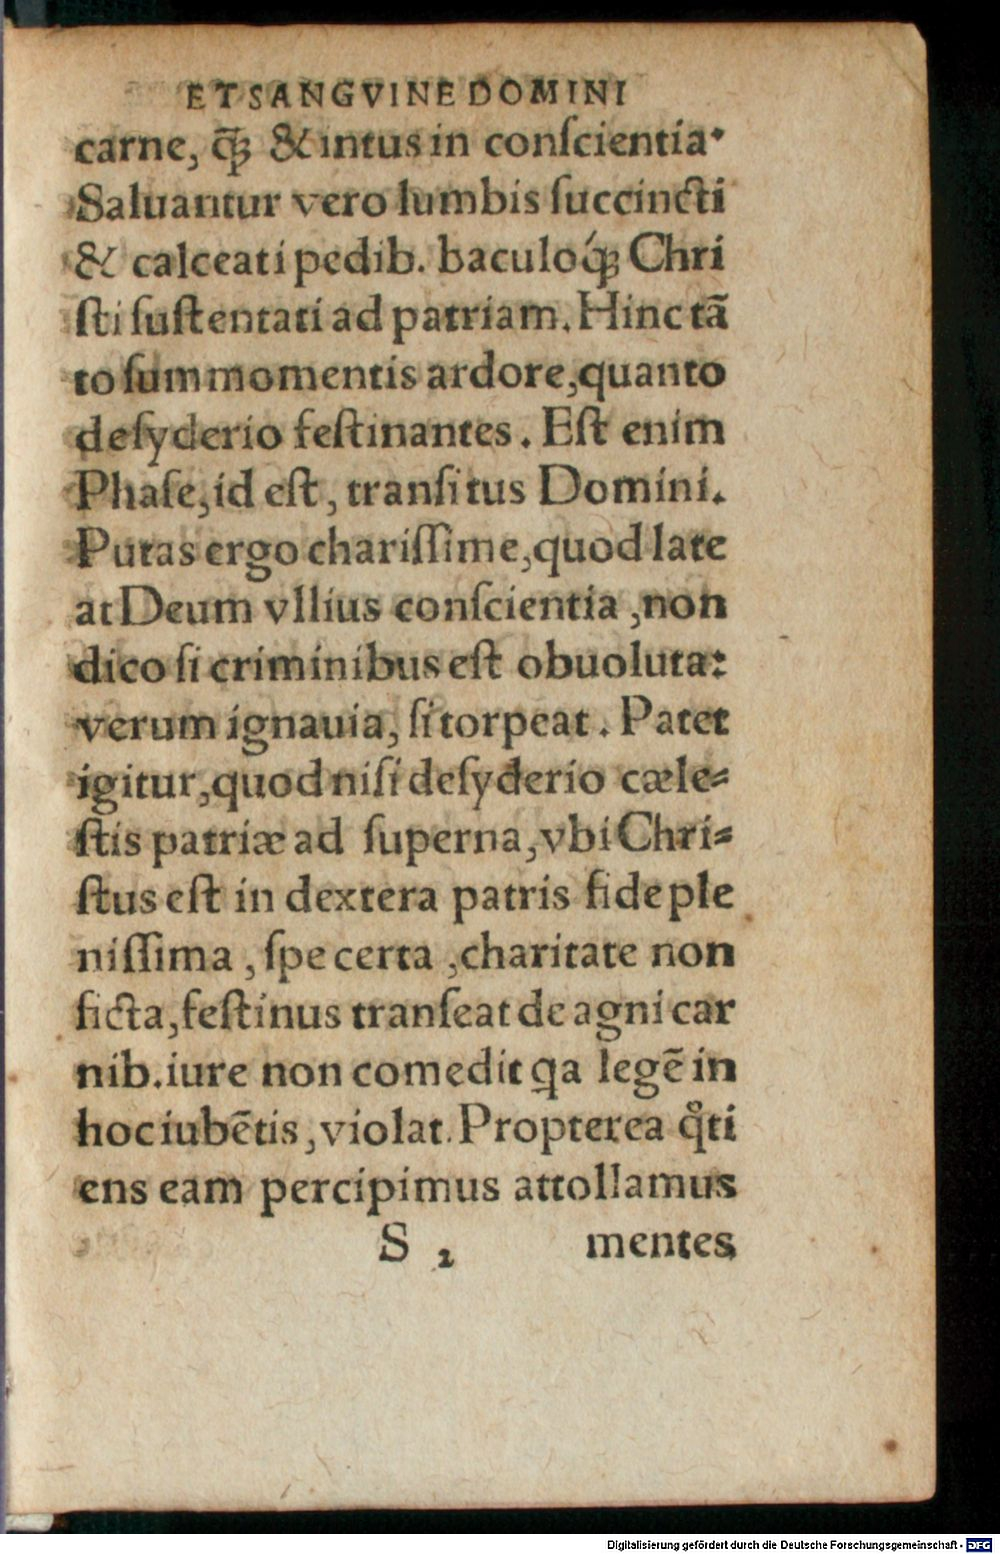 ET SANGVINE DOMINI
carne, q̃ꝫ & intus in conſcientia.
Saluantur vero lumbis ſuccincti
& calceati pedib. baculoq́ꝫ Chri
ſti ſuſtentati ad patriam. Hinc tã
to ſummomentis ardore, quanto
deſyderio feſtinantes. Eſt enim
Phaſe, id eſt, tranſitus Domini.
Putas ergo chariſſime, quod late
at Deum vllius conſcientia, non
dico ſi criminibus eſt obuoluta:
verum ignauia, ſi torpeat. Patet
igitur, quod niſi deſyderio cæle⸗
ſtis patriæ ad ſuperna, vbi Chri⸗
ſtus eſt in dextera patris fide ple
niſſima, ſpe certa, charitate non
ficta, feſtinus tranſeat de agni car
nib. iure non comedit qa legẽ in
hoc iubẽtis, violat. Propterea qͦti
ens eam percipimus attollamus
S 2 mentes
Digitalisierung gefördert durch die Deutsche Forschungsgemeinschaft - DFG